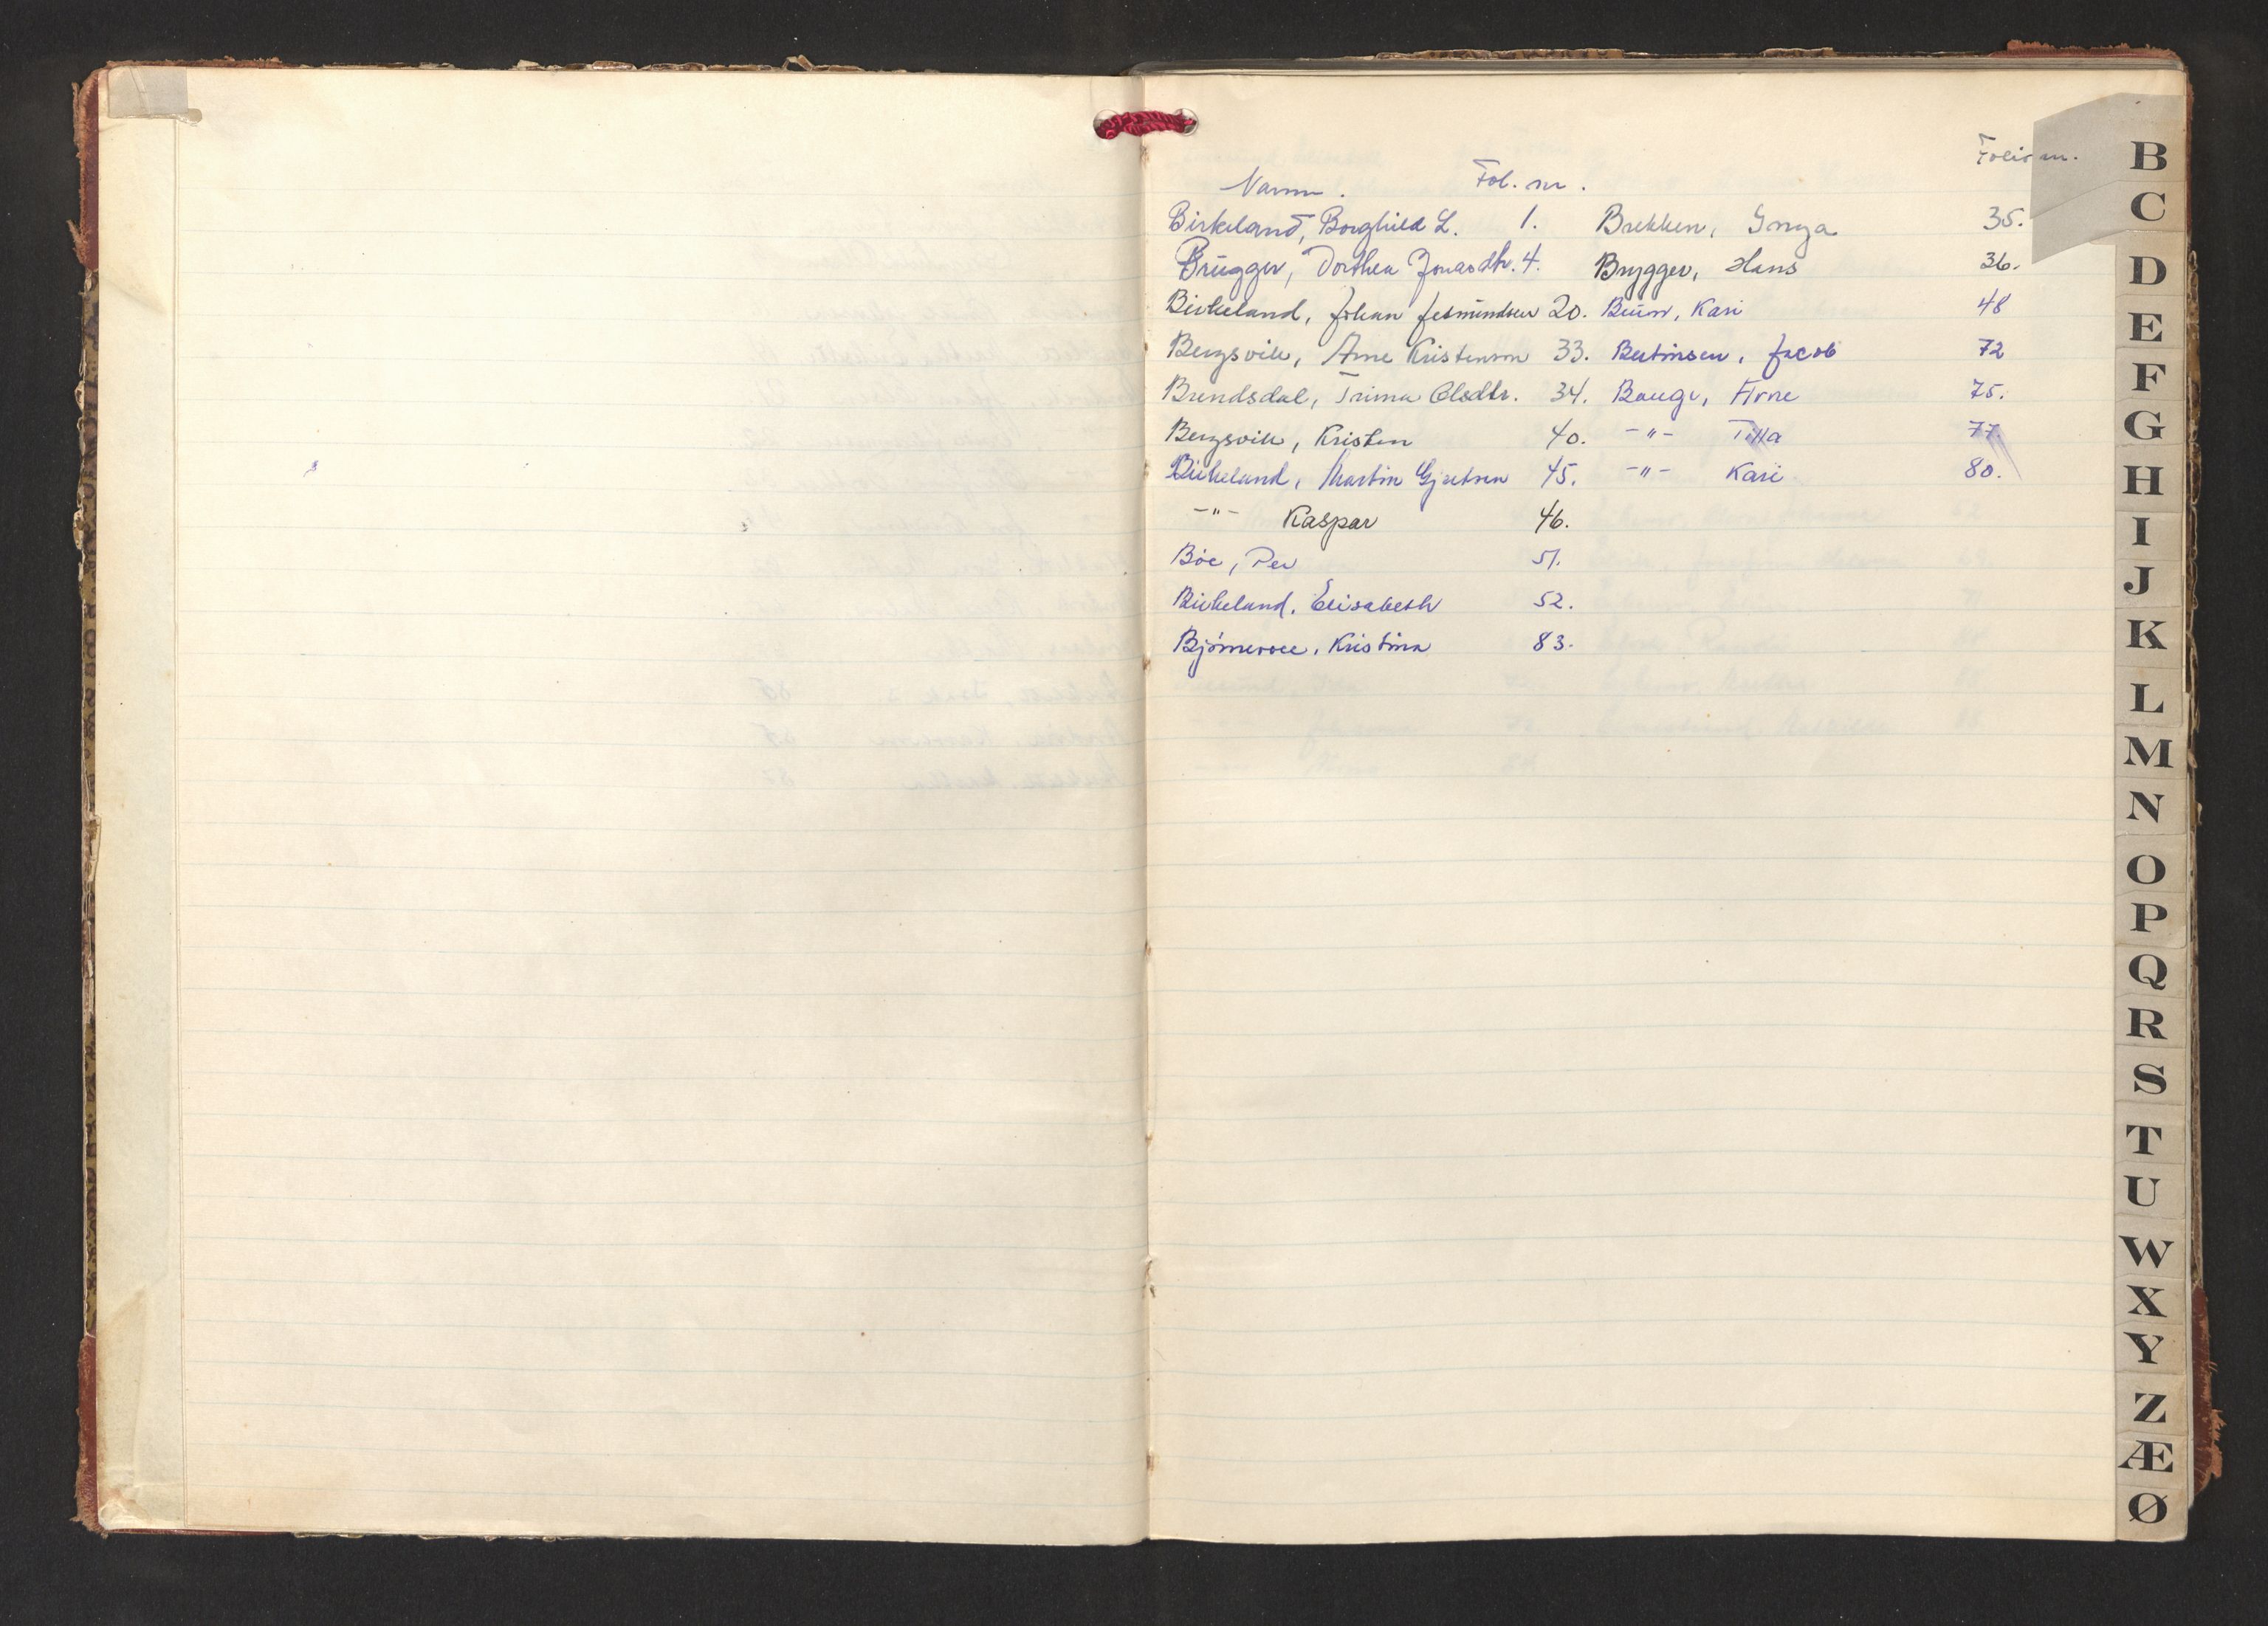 Folio nr.
Namn. Fol. nr.
Birkeland, Borghild L. 1. Brekken, Inga 35.
Brügger, Dorthea Jonasdtr. 4. Brygger, Hans 36.
Birkeland, Johan Jetmundsen 20. Kari 48
Bergsvik, Arne Kristenson 33. Bertinsen, Jacob 72
Brendsdal, Trina Olsdtr. 34. Bauge, Arne 75.
Bergsvik, Kristen 40. -"- 77.
Birkeland, Martin Gjertsen 45. -"- Kari 80.
-"- Kaspar 46.
Bøe, Per 51.
Birkeland, Elisabeth 52.
Kristina 83.
B
C
D
E
F
G
H
I
J
K
L
M
N
O
P
Q
R
S
T
U
W
X
Y
Z
Æ
Ø